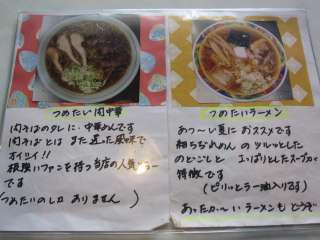 つめたい肉中華
肉そばのタレに、中華めんです
肉そばとは また違った風味で
オイシイ!!
根強いファンを持つ当店の人気メニュー
です
(つめたいのしか ありません)
つめたいラーメン
あつ〜い夏に おススメです
細ちぢれめんの ツルッとした
のどごしと さっぱりとしたスープが
特徴です
(ピリッとラー油入りです)
あったか〜いラーメンも どうぞ